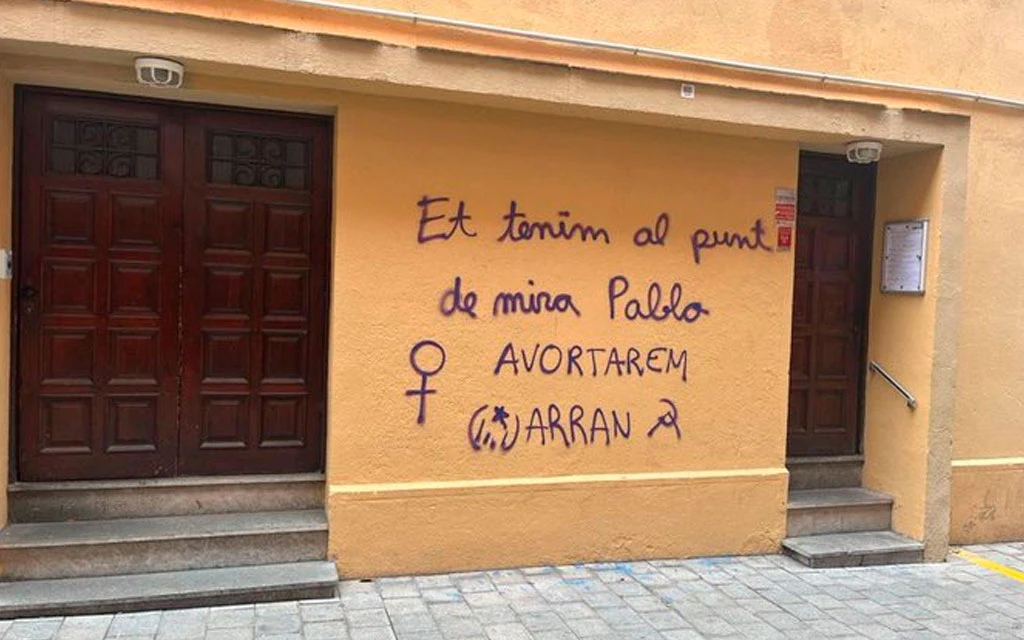 Et tenim al punt
de mira Pablo
AVORTAREM
ARRAN